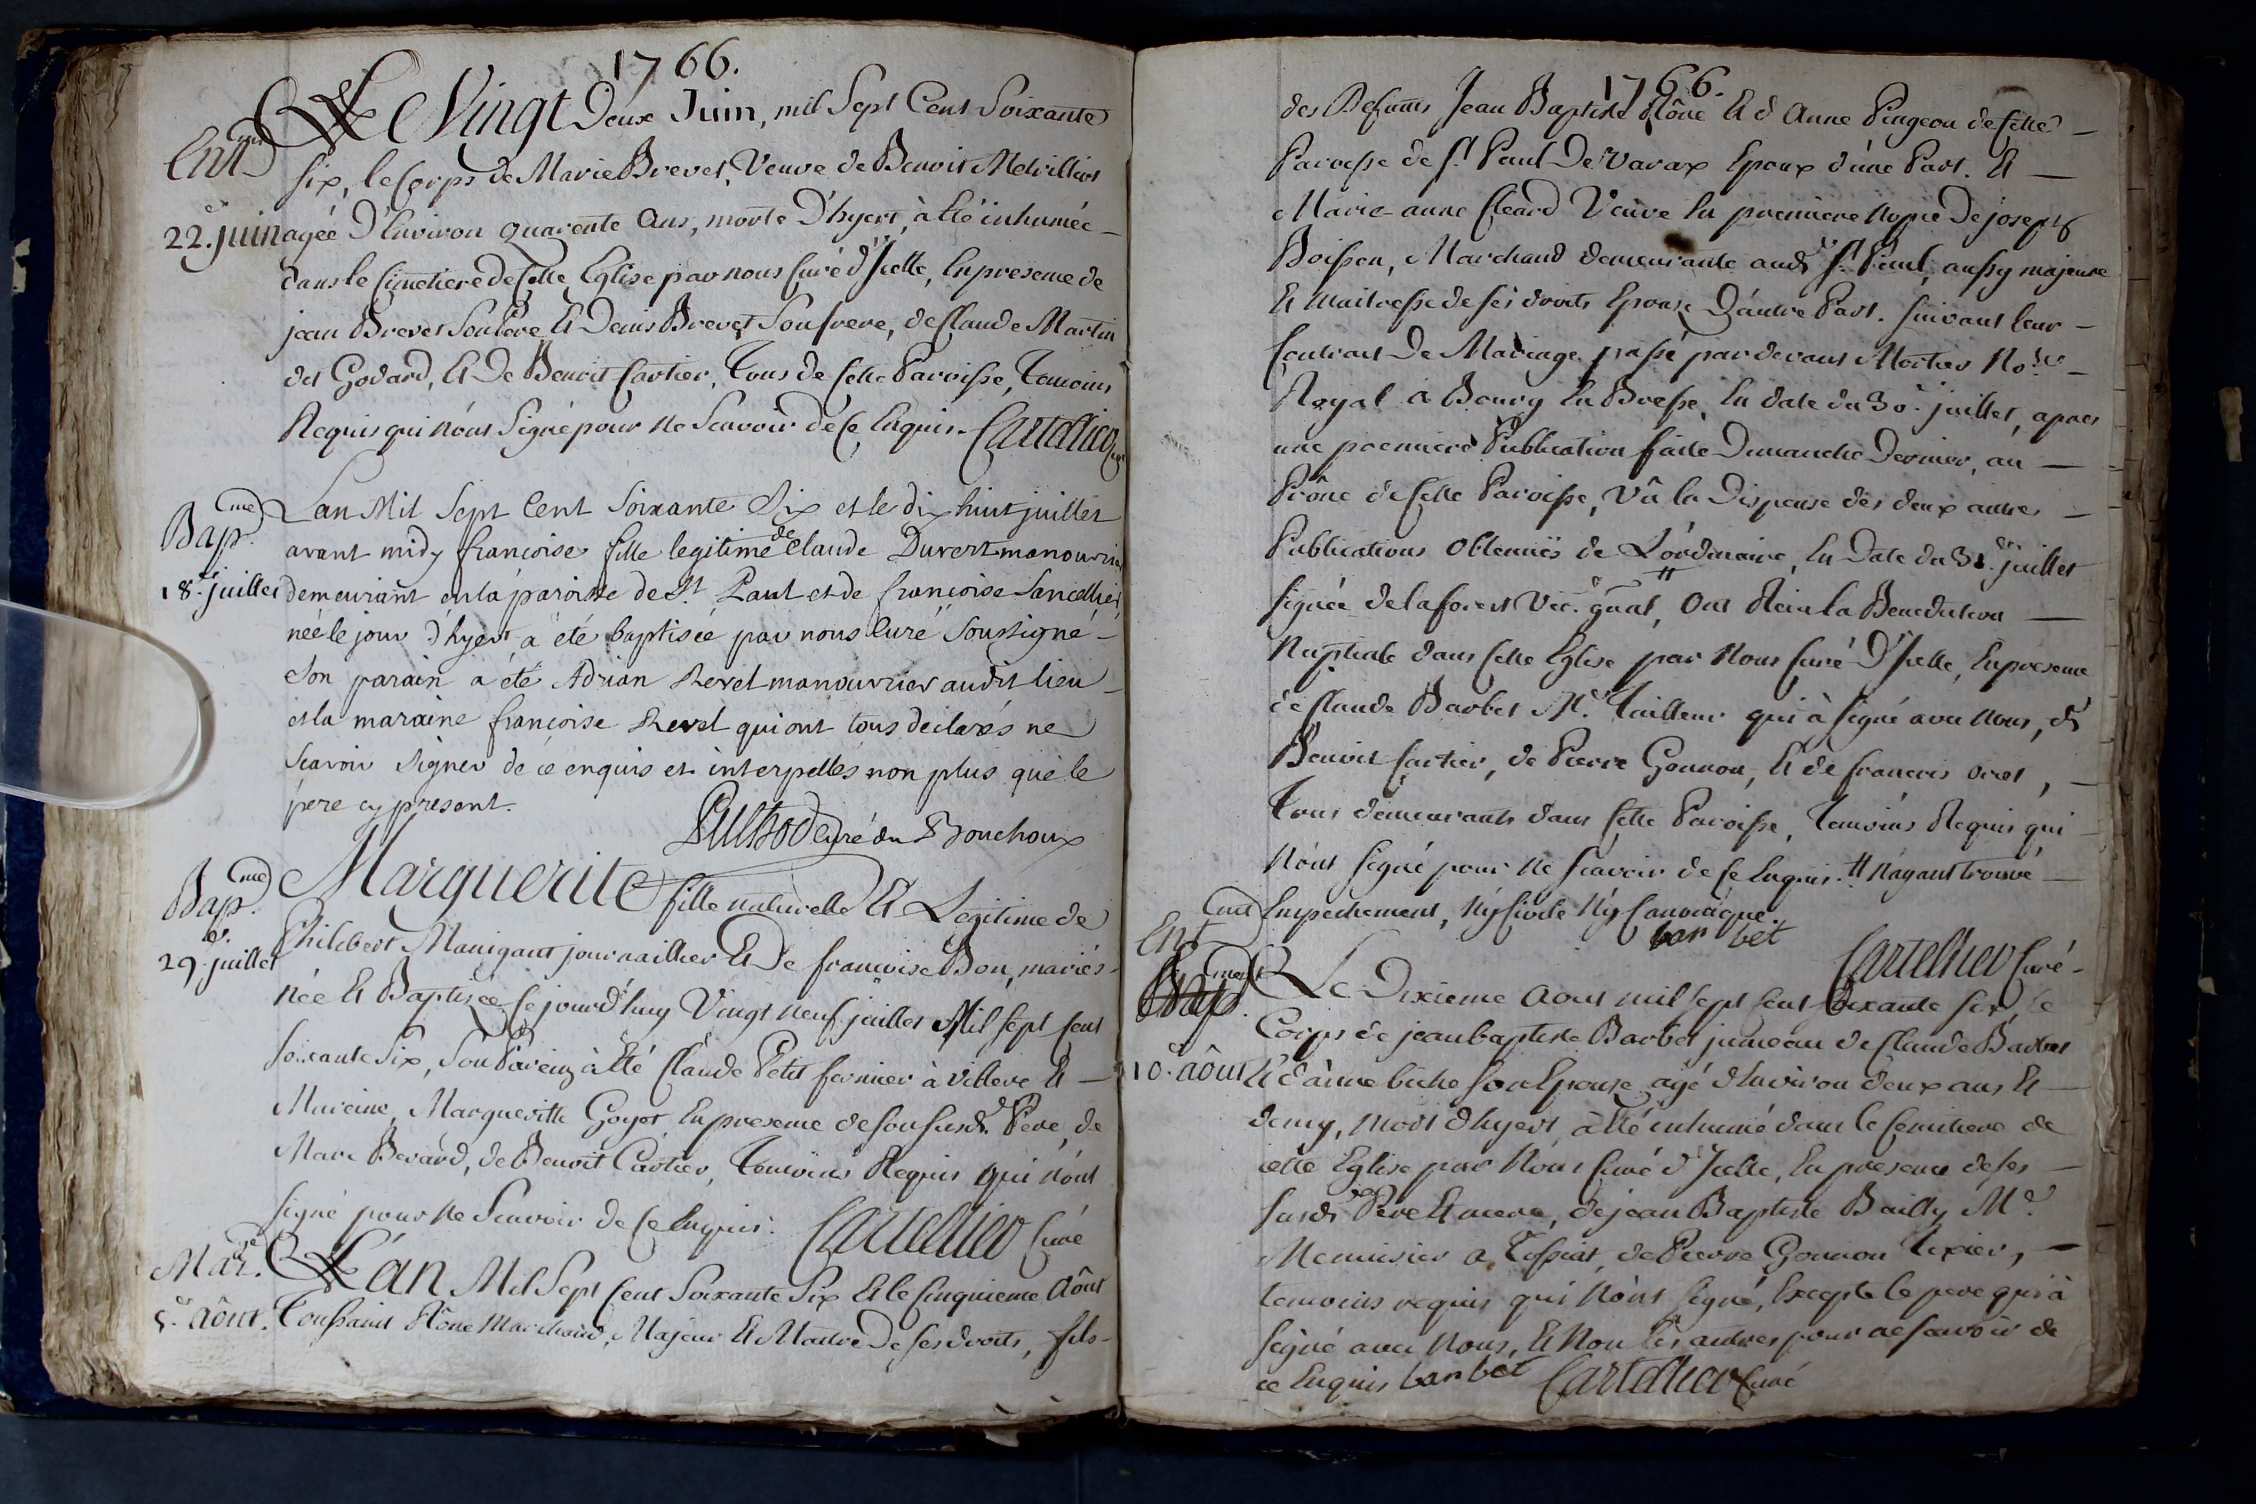 1766.
Ent.
22.e juin
Le Vingt Deux Juin, mil Sept Cent Soixante
six, le Corps de Marie Brevet, Veuve de Benoit
agée D'Environ quarente Ans, morte D'hyert, à Eté inhumée
dans le Cimetiere de Cette Eglise par nous Curé d'Icelle, En presence de
jean Brevet Son Pere, Et Denis Brevet Son frere, de Claude Martin
dit Godard, Et De Benoit Cartier, Tous de Cette Paroisse, Temoins
Requis qui n'ont Signé pour ne Scavoir de Ce Enquis. Cartellier
Bap.me
18.e juillet
Lan Mil Sept Cent Soixante Six et le dix huit juillet
avant midy françoise fille legitime de Claude Duvert manouvrier
demeurant en la paroisse de St. Paul et de françoise
née le jour d'hyert a été baptisée par nous Curé Soussigné
Son parain a été Adrian Revel manouvrier audit lieu
et la maraine françoise Revel qui ont tous declarés ne
Scavoir Signer de ce enquis et interpellés non plus que le
pere cy present.
Curé du Bouchoux
Bap.me
29.e juillet
Marguerite fille naturelle Et Legitime de
Philibert Manigant journaillier Et De francoise Bon, mariés
née Et Baptisée Ce jourd'huy Vingt neuf juillet Mil Sept Cent
Soixante Six, Son Parein à Eté Claude Petit fermier à Et
Mareine, Margueritte Goyot, En presence de son susd. Pere, de
Marc Berard, de Benoit Cartier, Temoins Requis qui n'ont
Signé pour ne Scavoir de Ce Enquis. Cartellier Curé
Mar.
5.e Aôut.
L'an Mil Sept Cent Soixante Six Et le Cinquieme Aôut
Toussaint Rône Marchand, Majeur Et Maitre De ses droits, fils
1766.
des Defunts Jean Baptiste Rône Et d'Anne Pingeon de Cette
Paroisse de St. Paul De Varax Epoux d'une Part. Et
Marie-anne Cleard Veuve En premiere nopce De joseph
Boisson, Marchand demeurante aud. St. Paul, aussy majeure
Et maitresse de ses droits Epouse D'autre Part. Suivant leur
Contrait De Mariage passé par devant Mortier No.re
Royal à Bourg En Bresse, En date du 30.e juillet, apres
une premiere Publication faite Dimanche Dernier, au
Prône de Cette Paroisse, Vû la Dispense des deux autres
Publications Obtenües de L'ordinaire, En Date du 31.e juillet
Signée delaforest Vic. gnal, Ont Recu la Benediction
Nuptiale dans Cette Eglise par Nous Curé D'Icelle, En presence
de Claude Barbet M.e Tailleur qui à Signé avec Nous, de
Benoit Cartier, de Pierre Gonnon, Et de francois
Tous demeurants dans Cette Paroisse, Temoins Requis qui
n'ont Signé pour ne Scavoir de Ce Enquis. # n'ayant trouvé
Empechement, Ny Civile Ny Canonique.
barbet Cartellier Curé
Ent.
Bap.
10.e Aôut
Le Dixieme Aout mil Sept Cent Soixante Six, le
Corps de jean baptiste Barbet jumeau de Claude Barbet
Et d'anne biche Son Epouse agé d'Environ deux ans Et
demy, mort d'hyert, à Eté inhumé dans le Cemitiere de
Cette Eglise par Nous Curé d'Icelle, En presence de ses
susds. Pere Et mere, de jean Baptiste Bailly M.e
Menuisier a de Pierre Gonnon Texier,
temoins requis qui n'ont Signé, Excepté le pere qui à
Signé avec Nous, Et Non les autres pour ne scavoir de
ce Enquis barbet Cartellier Curé